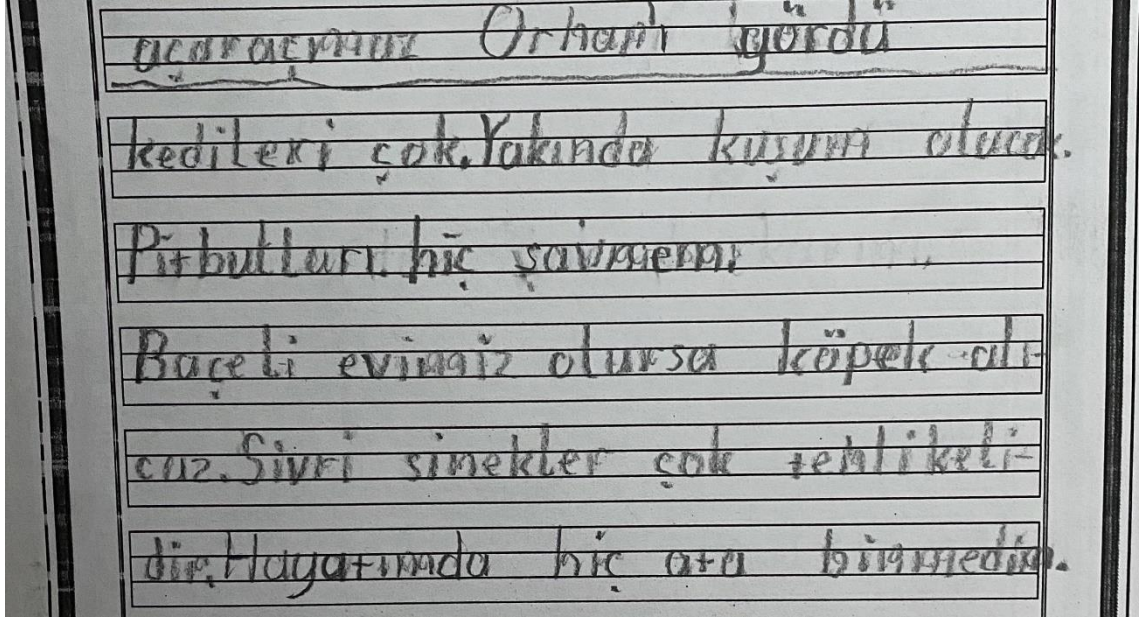 Orhanı gördü
kedileri çok. Yakında kuşum olucak.
Pitbulları hiç şavmem.
Baçeli evimiz olursa köpek alı-
caz. Sivri sinekler çok tehlikeli-
dir. Hayatımda hiç ata binmedim.